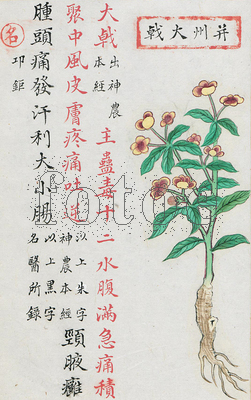 并州大戟
大戟 出神農
本經 主蠱毒十二水腹滿急痛積
聚中風皮膚疼痛吐逆 以上朱字
神農本經 頸腋癰
腫頭痛發汗利大小腸 以上黑字
名醫所錄
名 卭鉅